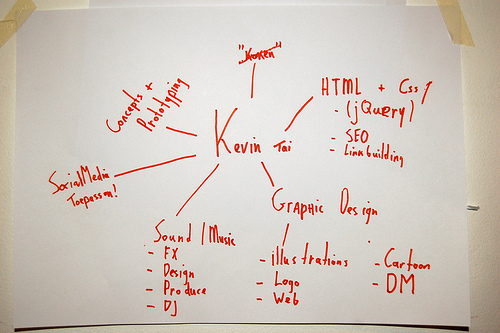 "Koken"
HTML + Css
- (jQuery)
- SEO
- Linkbuilding
Concepts +
Prototyping
Kevin Tai
Social Media
Toepassen!
Graphic Design
- illustrations
- Logo
- Web
- Cartoon
- DM
Sound / Music
- FX
- Design
- Produce
- DJ